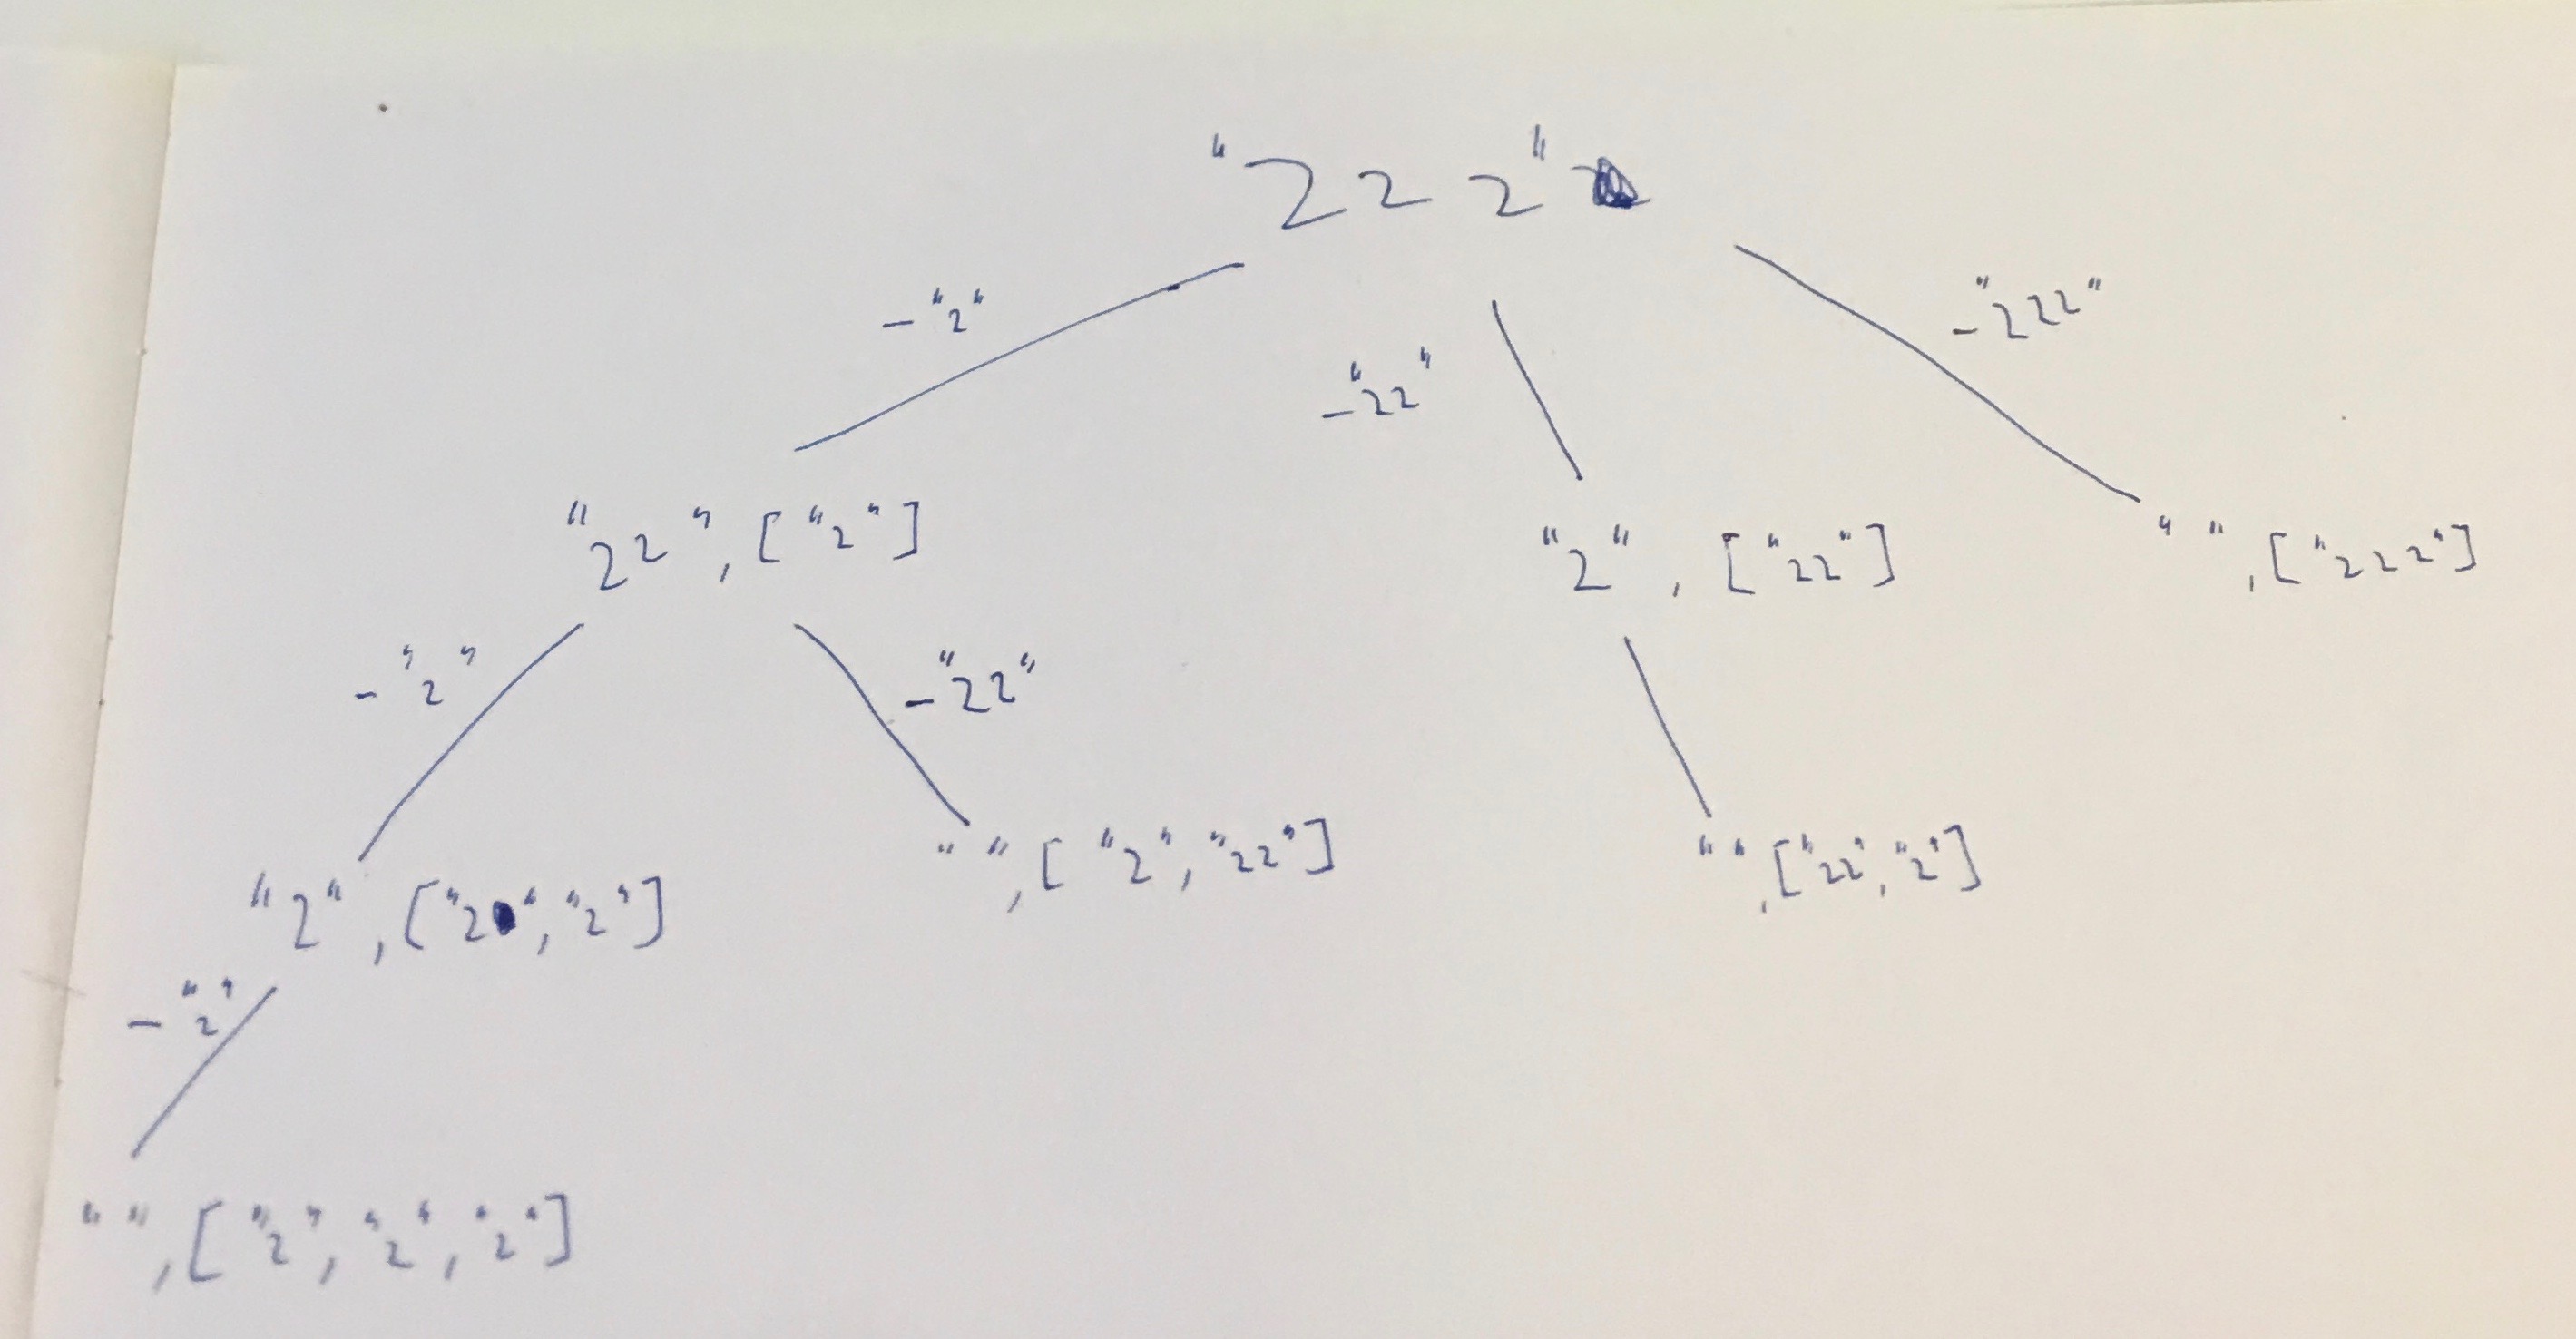 "222"
-"2"
-"22"
-"222"
"22", ["2"]
"2", ["22"]
" ", ["222"]
-"2"
-"22"
"2", ["2", "2"]
" ", ["2", "22"]
" ", ["22", "2"]
-"2"
" ", ["2", "2", "2"]